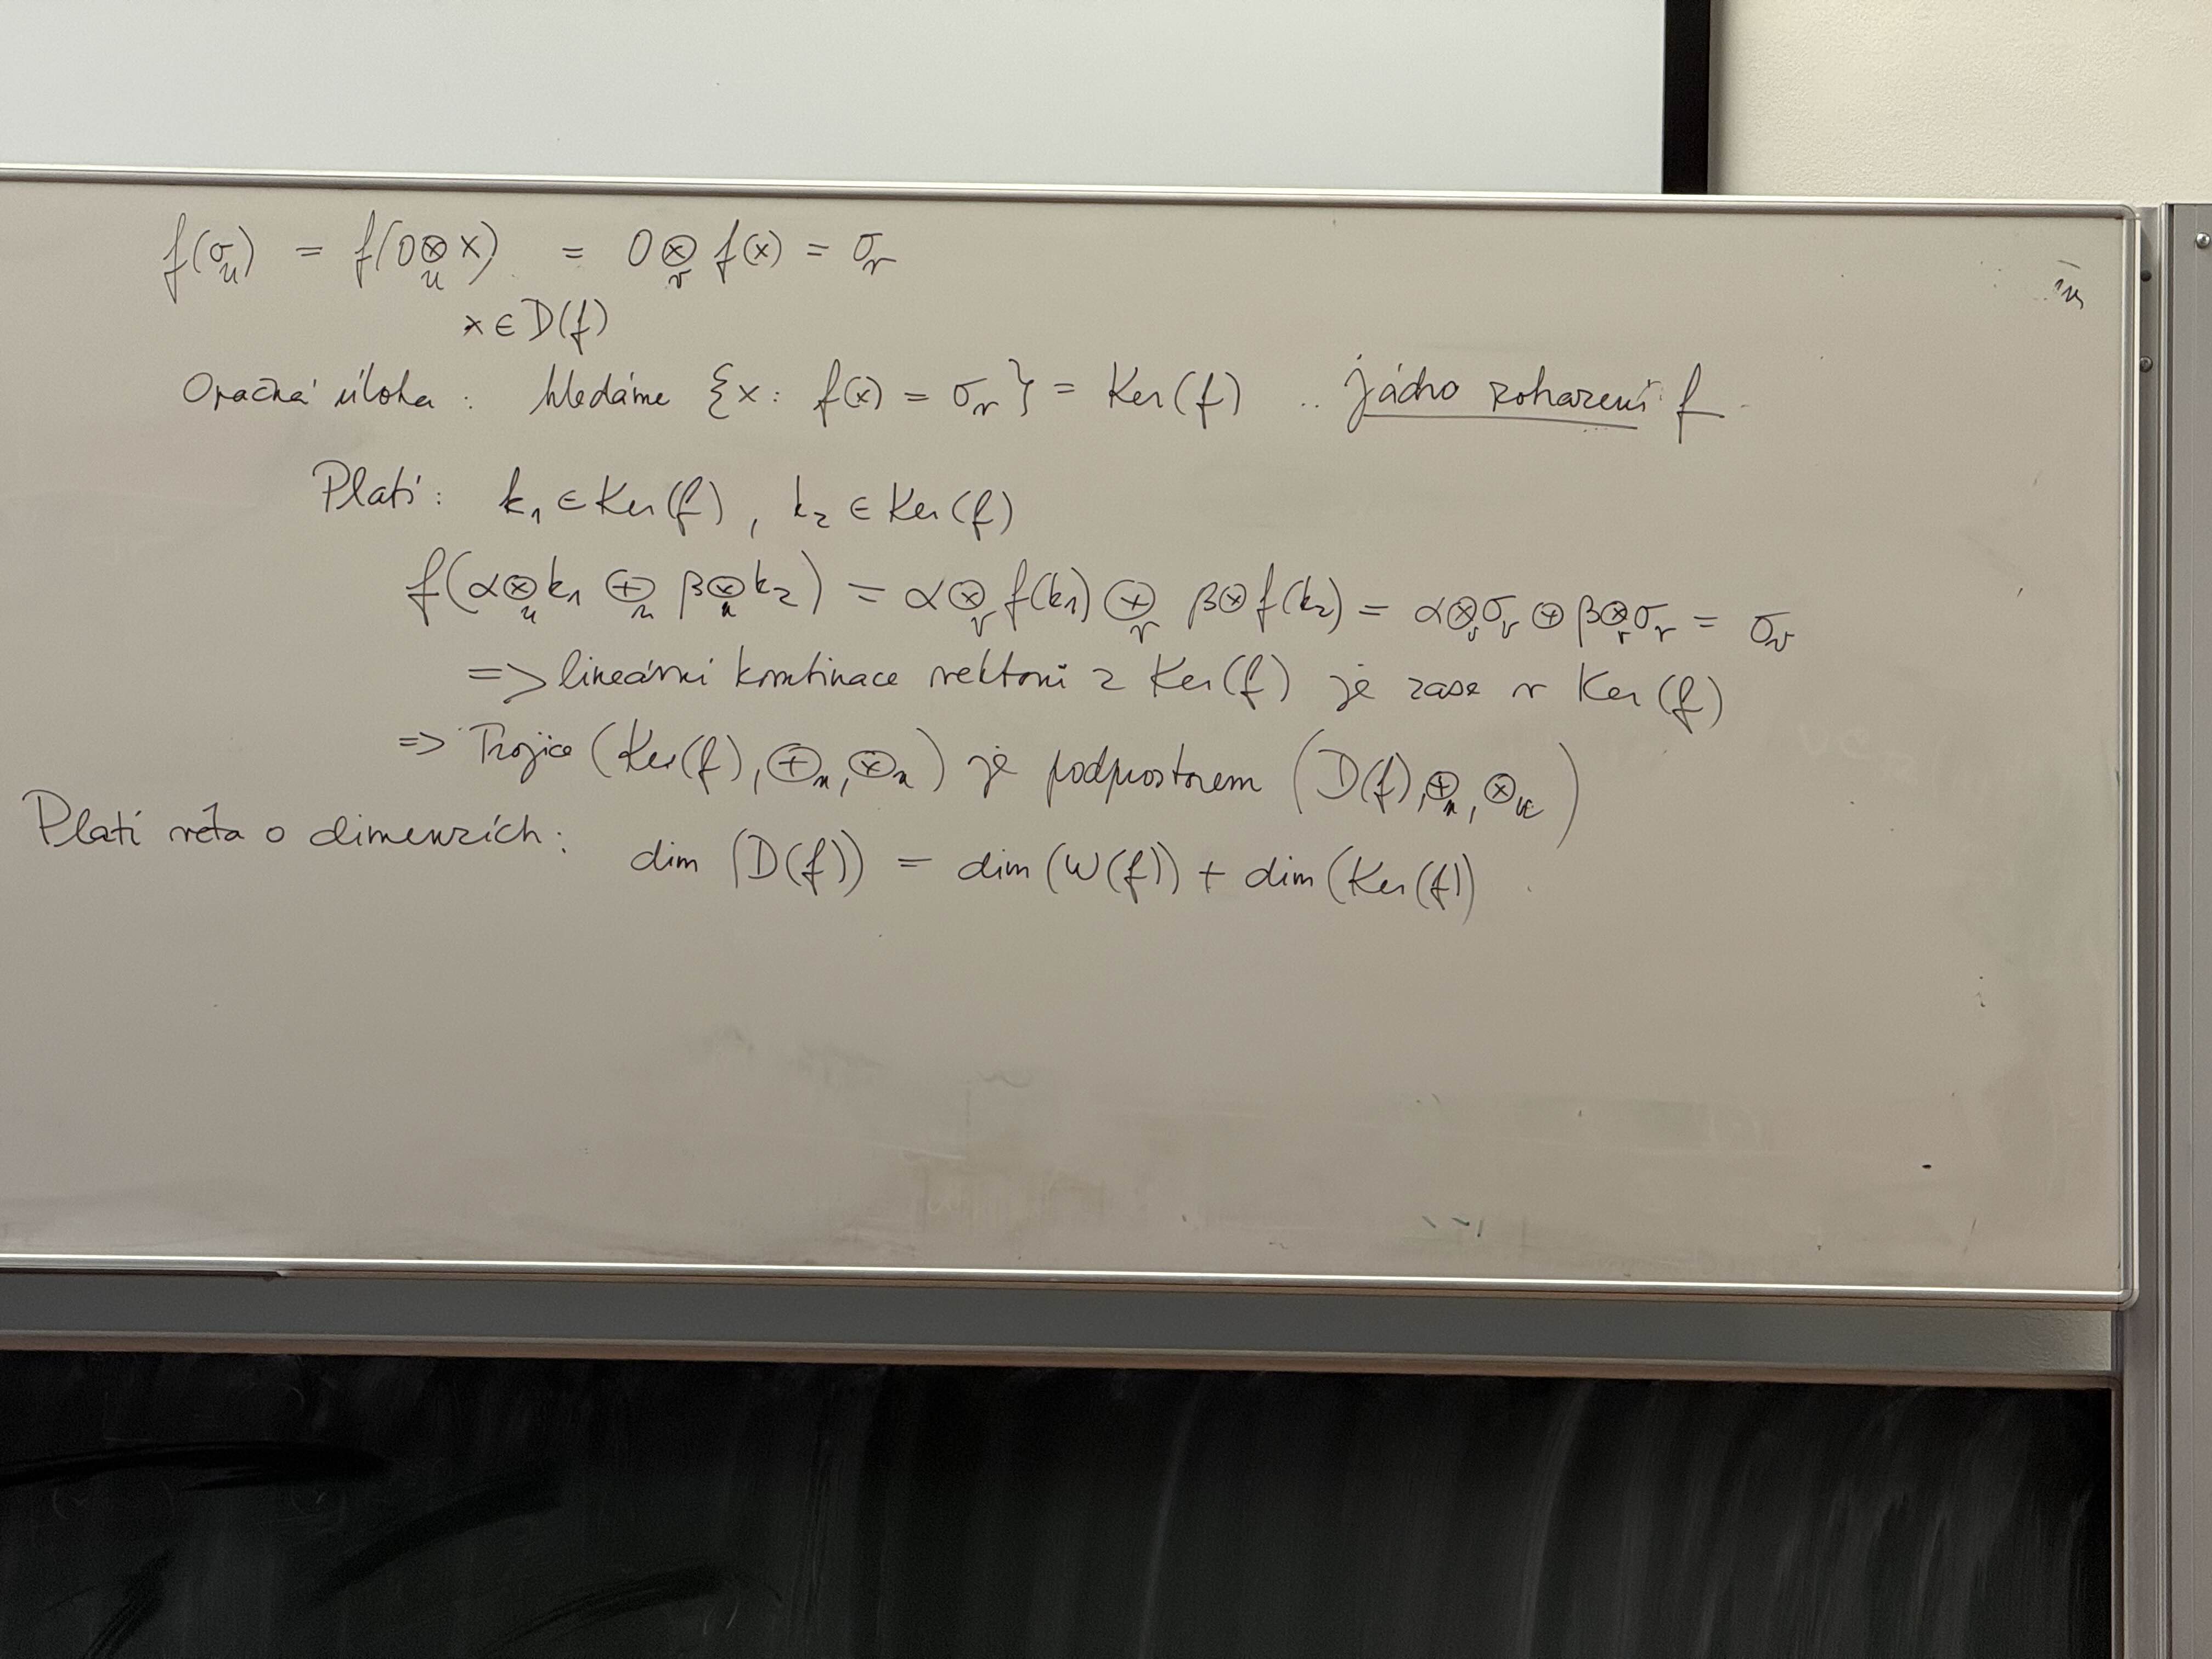 f(σ_u) = f(0 ⊗_u x) = 0 ⊗_v f(x) = σ_v
x ∈ D(f)
Opačná úloha: hledáme {x: f(x) = σ_v} = Ker(f) .. jádro zobrazení f
Platí: k₁ ∈ Ker(f), k₂ ∈ Ker(f)
f(α ⊗_u k₁ ⊕_u β ⊗_u k₂) = α ⊗_v f(k₁) ⊕_v β ⊗ f(k₂) = α ⊗_v σ_v ⊕ β ⊗_v σ_v = σ_v
=> lineární kombinace vektorů z Ker(f) je zase v Ker(f)
=> Trojice (Ker(f), ⊕_u, ⊗_u) je podprostorem (D(f), ⊕_u, ⊗_u)
Platí věta o dimenzích: dim (D(f)) = dim (W(f)) + dim (Ker(f))